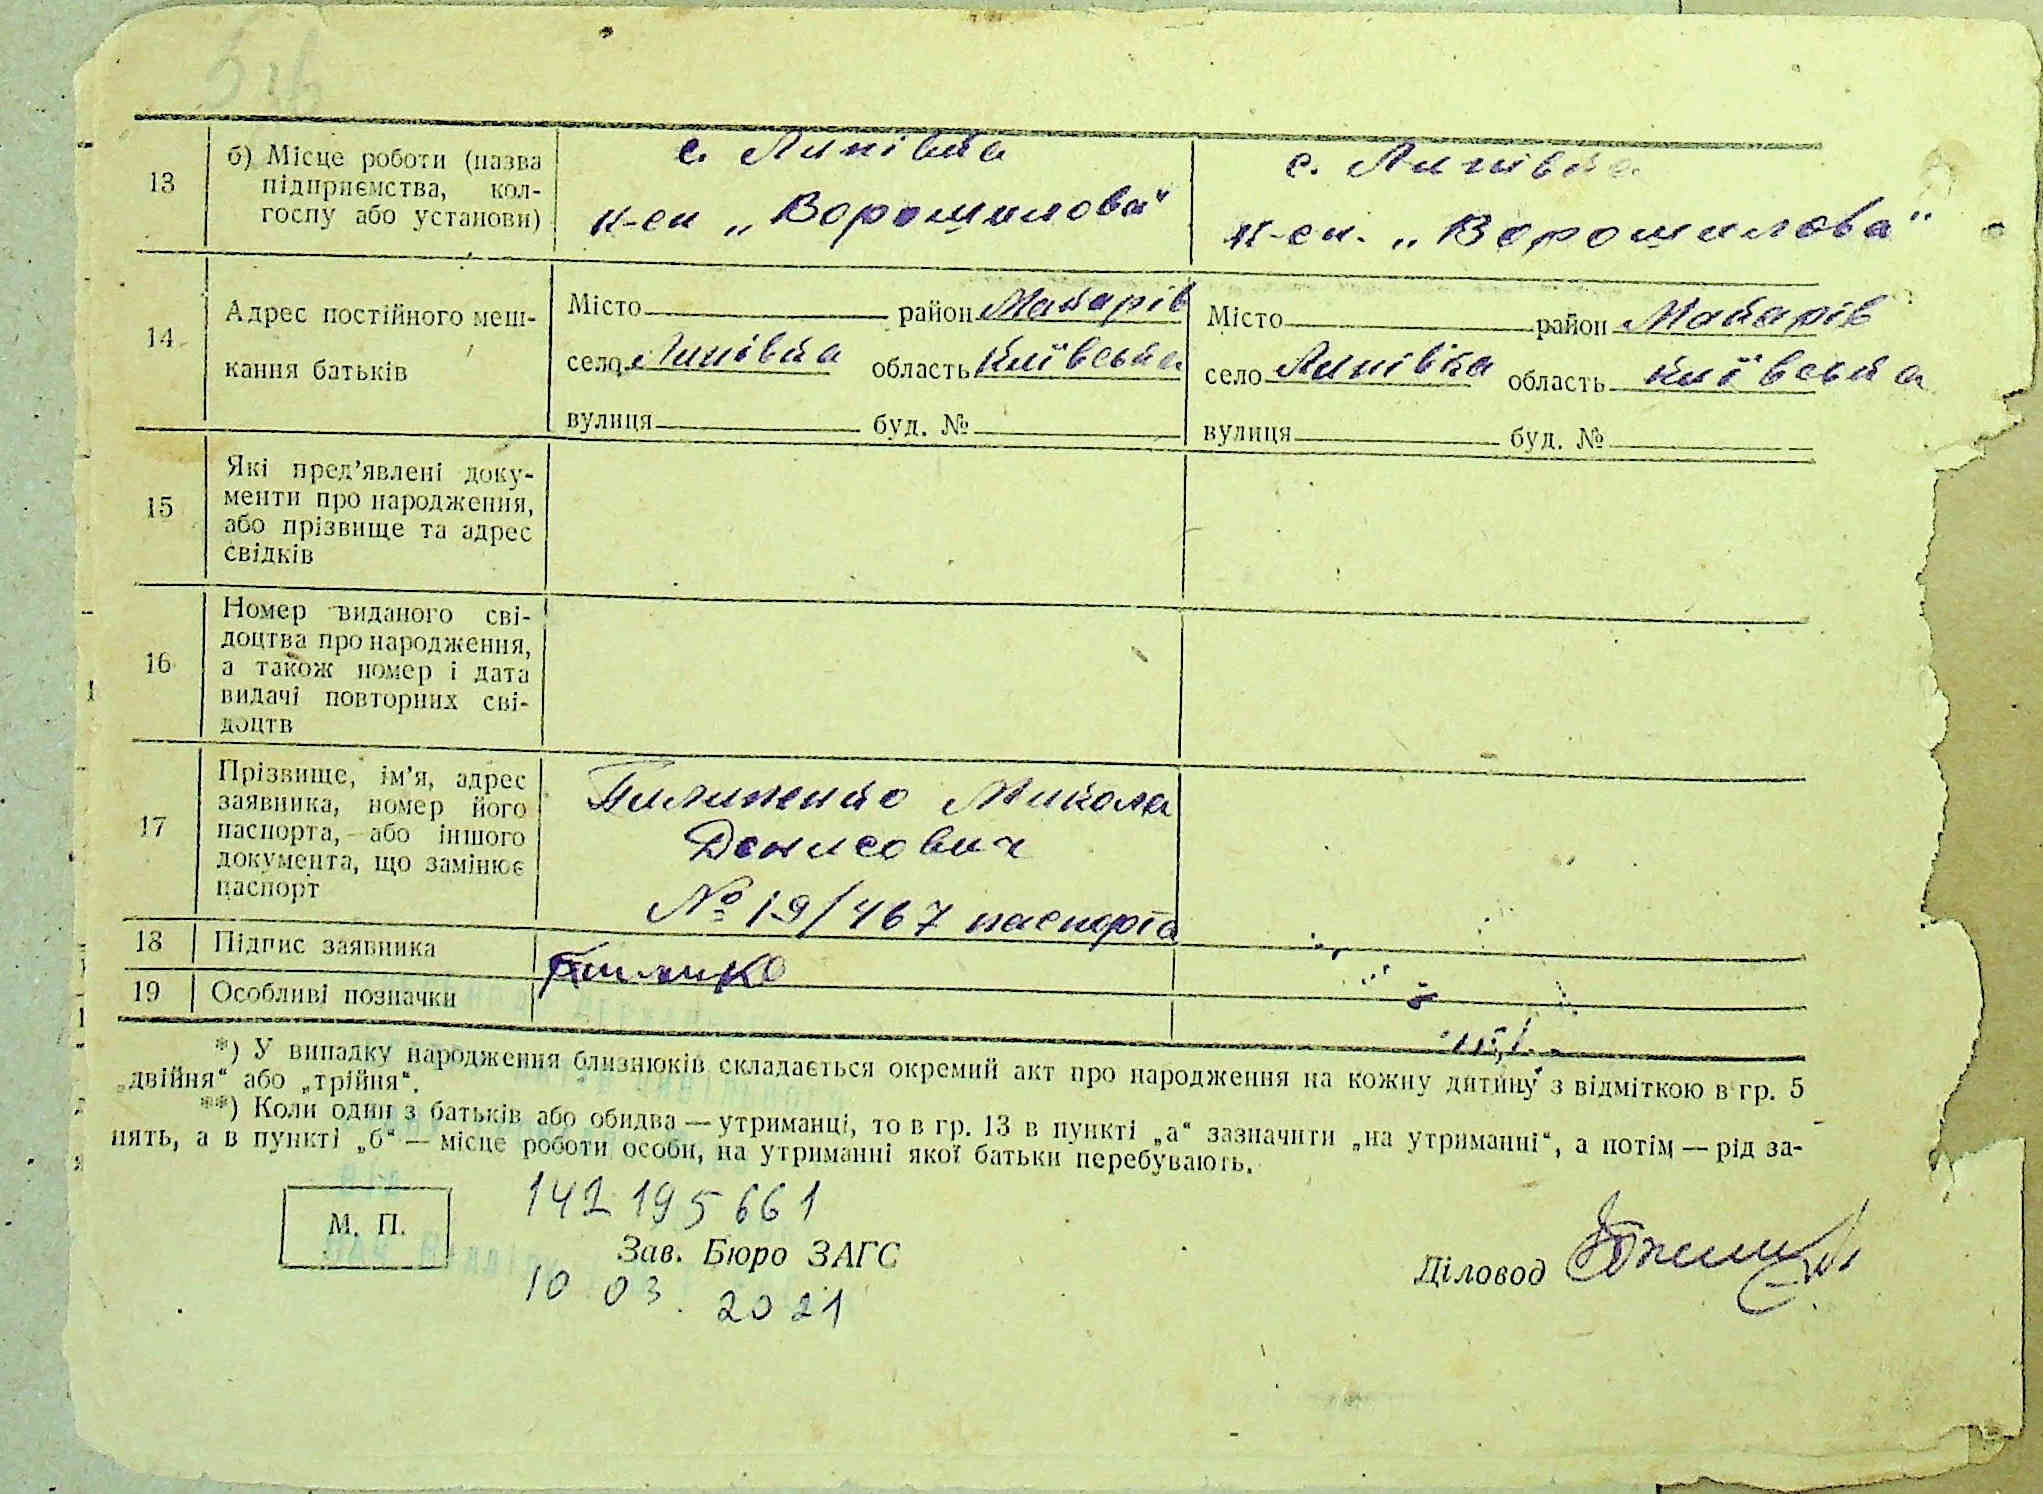 13
б) Місце роботи (назва
підприємства, кол-
госпу або установи)
с. Липівка
к-сп „Ворошилова"
с. Липівка
к-сп. „Ворошилова"
14
Адрес постійного меш-
кання батьків
Місто район Макарів
село Липівка область Київська
вулиця буд. №
Місто район Макарів
село Липівка область Київська
вулиця буд. №
15
Які пред'явлені доку-
менти про народження,
або прізвище та адрес
свідків
16
Номер виданого сві-
доцтва про народження,
а також номер і дата
видачі повторних сві-
доцтв
17
Прізвище, ім'я, адрес
заявника, номер його
паспорта, або іншого
документа, що замінює
паспорт
Пилипенко Микола
Денисович
№ 19/467 паспорта
18 Підпис заявника
19 Особливі позначки
*) У випадку народження близнюків складається окремий акт про народження на кожну дитину з відміткою в гр. 5
„двійня" або „трійня".
**) Коли один з батьків або обидва — утриманці, то в гр. 13 в пункті „а" зазначити „на утриманні", а потім — рід за-
нять, а в пункті „б" — місце роботи особи, на утриманні якої батьки перебувають.
М. П.
142 195 661
Зав. Бюро ЗАГС
10 03. 2021
Діловод